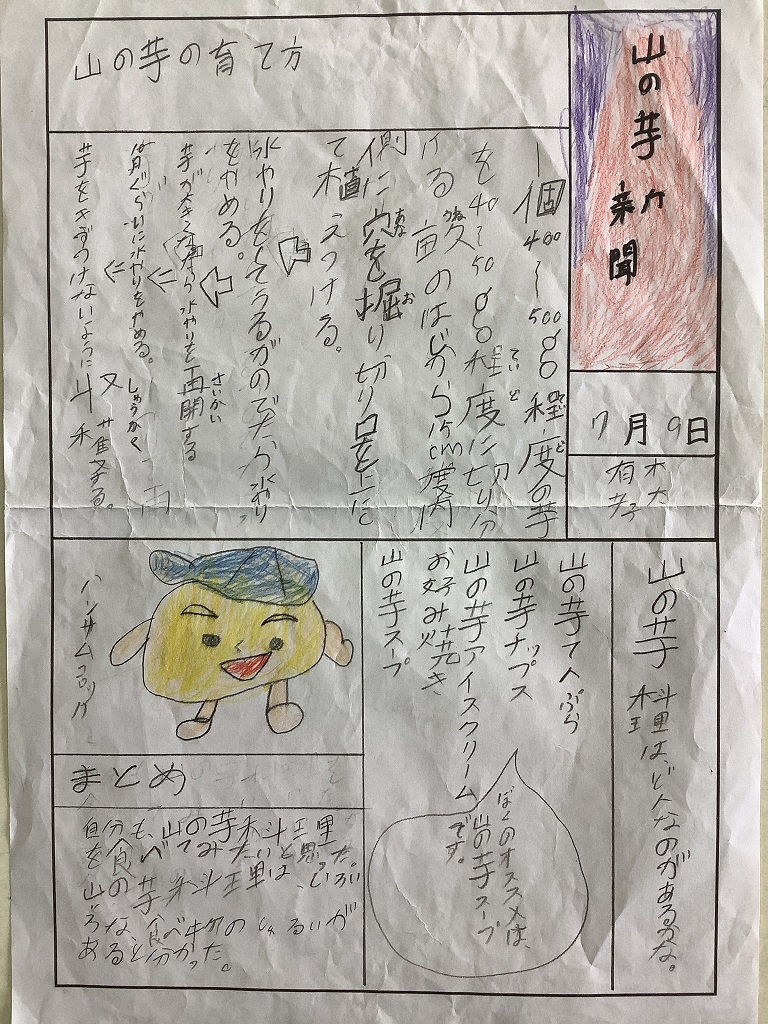 山の芋新聞
7月9日
山の芋の育て方
一個400～500g程度の芋
を40～50g程度に切り分
ける。畝のはじから15cm度内
側に穴を掘り切り口を上に
て植えつける。
水やりをしてうるがのでたから水やり
をやめる。
芋が大きくなたら水やりを再開する
月ぐらいに水やりをやめる。
芋をきずつけないように収穫する。
山の芋料理は、どんなのがあるかな。
山の芋てんぷら
山の芋チップス
山の芋アイスクリーム
お好み焼き
山の芋スープ
ぼくのオススメは、
山の芋スープ
です。
ハンサムコロッケ
まとめ
自分も、山の芋料理
を食べてみたいと思った。
山の芋料理は、いろい
ろな食べ物のしゅるいが
あると分かった。